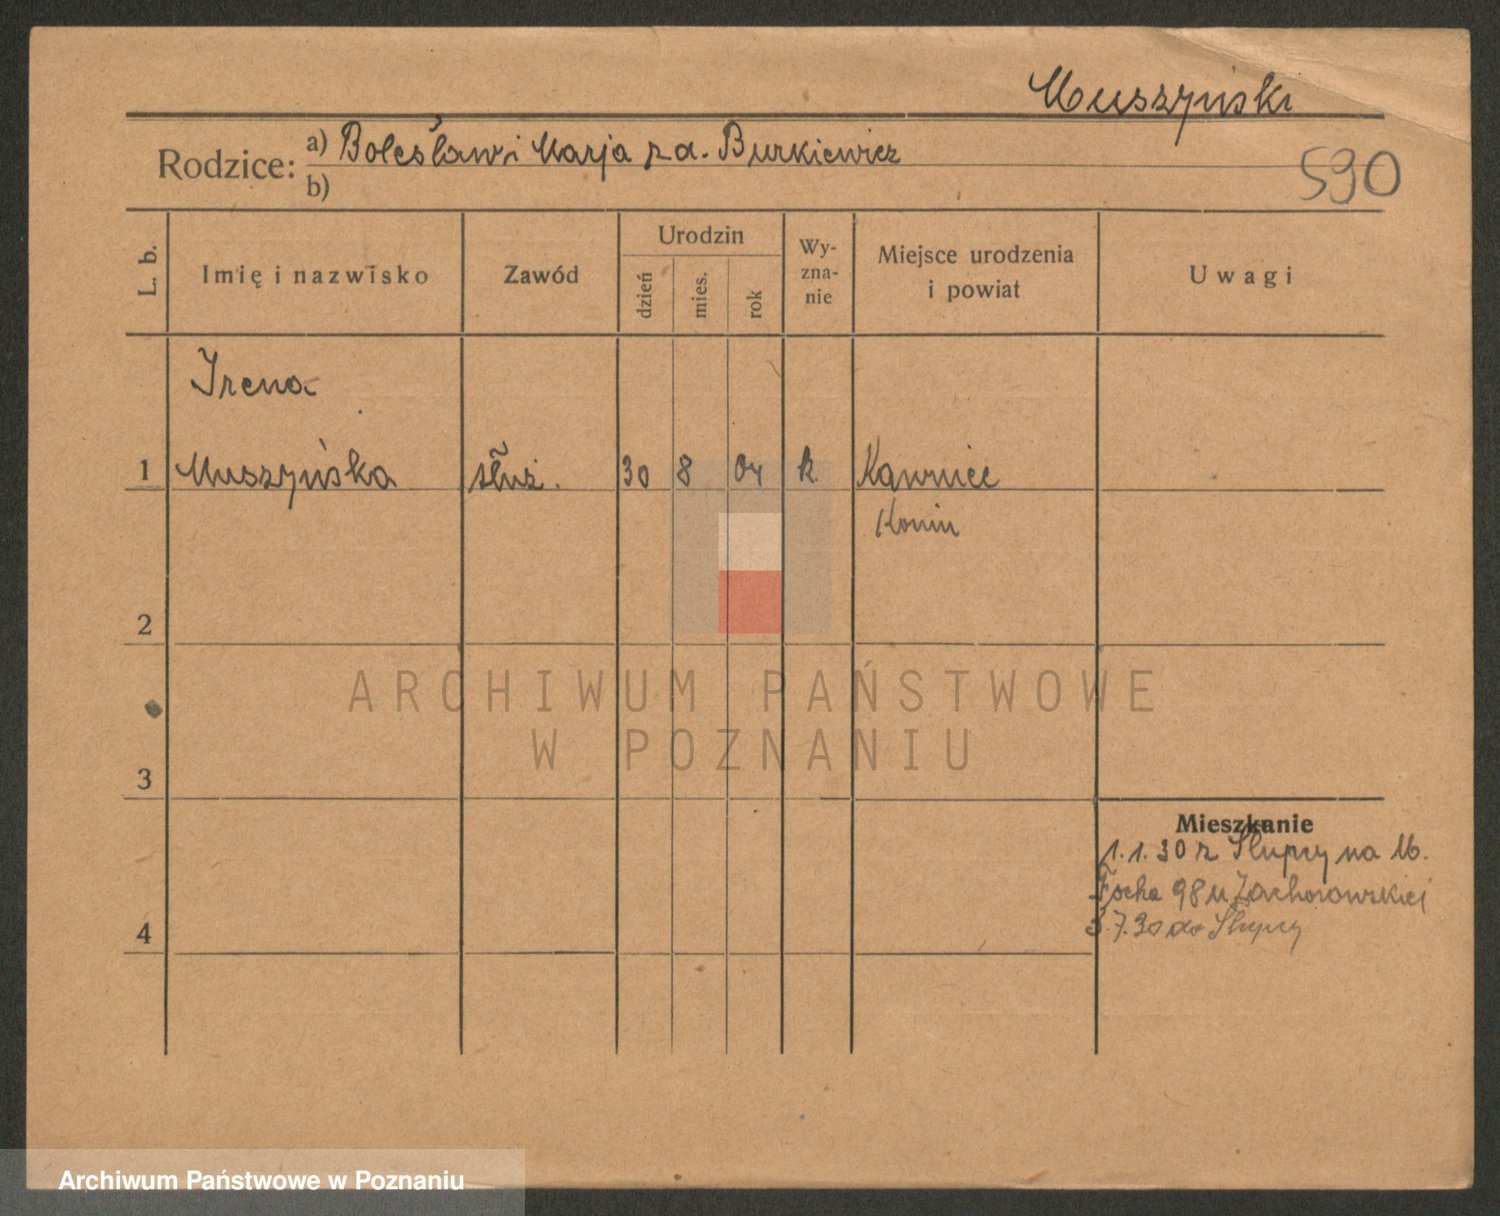 Muszyński
Rodzice: a) Bolesław i Marja z d. Burkiewicz
b)
590
L. b.
Imię i nazwisko
Zawód
Urodzin
dzień
mies.
rok
Wy-
zna-
nie
Miejsce urodzenia
i powiat
Uwagi
Irena
1 Muszyńska służ. 30 8 04 k. Kawnice
Konin
2
ARCHIWUM PAŃSTWOWE
W POZNANIU
3
Mieszkanie
1.1.30 z Słupcy na M.
Focha 98 u Zachorowskiej
3.7.30 do Słupcy
4
Archiwum Państwowe w Poznaniu